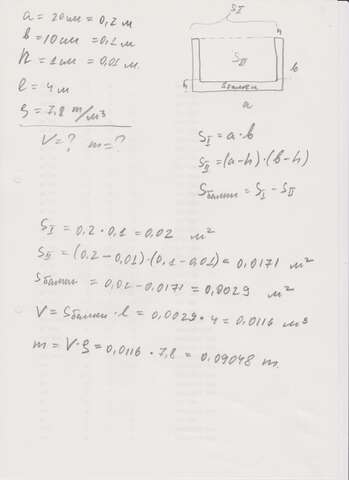 a = 20см = 0,2 м
b = 10см = 0,1 м
h = 1см = 0,01 м.
l = 4 м
ρ = 7,8 т/м³
V = ? m = ?
S_I
h h
S_II
b
h
S балки
a
S_I = a · b
S_II = (a-h) · (b-h)
S балки = S_I - S_II
S_I = 0,2 · 0,1 = 0,02 м²
S_II = (0,2 - 0,01) · (0,1 - 0,01) = 0,0171 м²
S балки = 0,02 - 0,0171 = 0,0029 м²
V = S балки · l = 0,0029 · 4 = 0,0116 м³
m = V · ρ = 0,0116 · 7,8 = 0,09048 т.